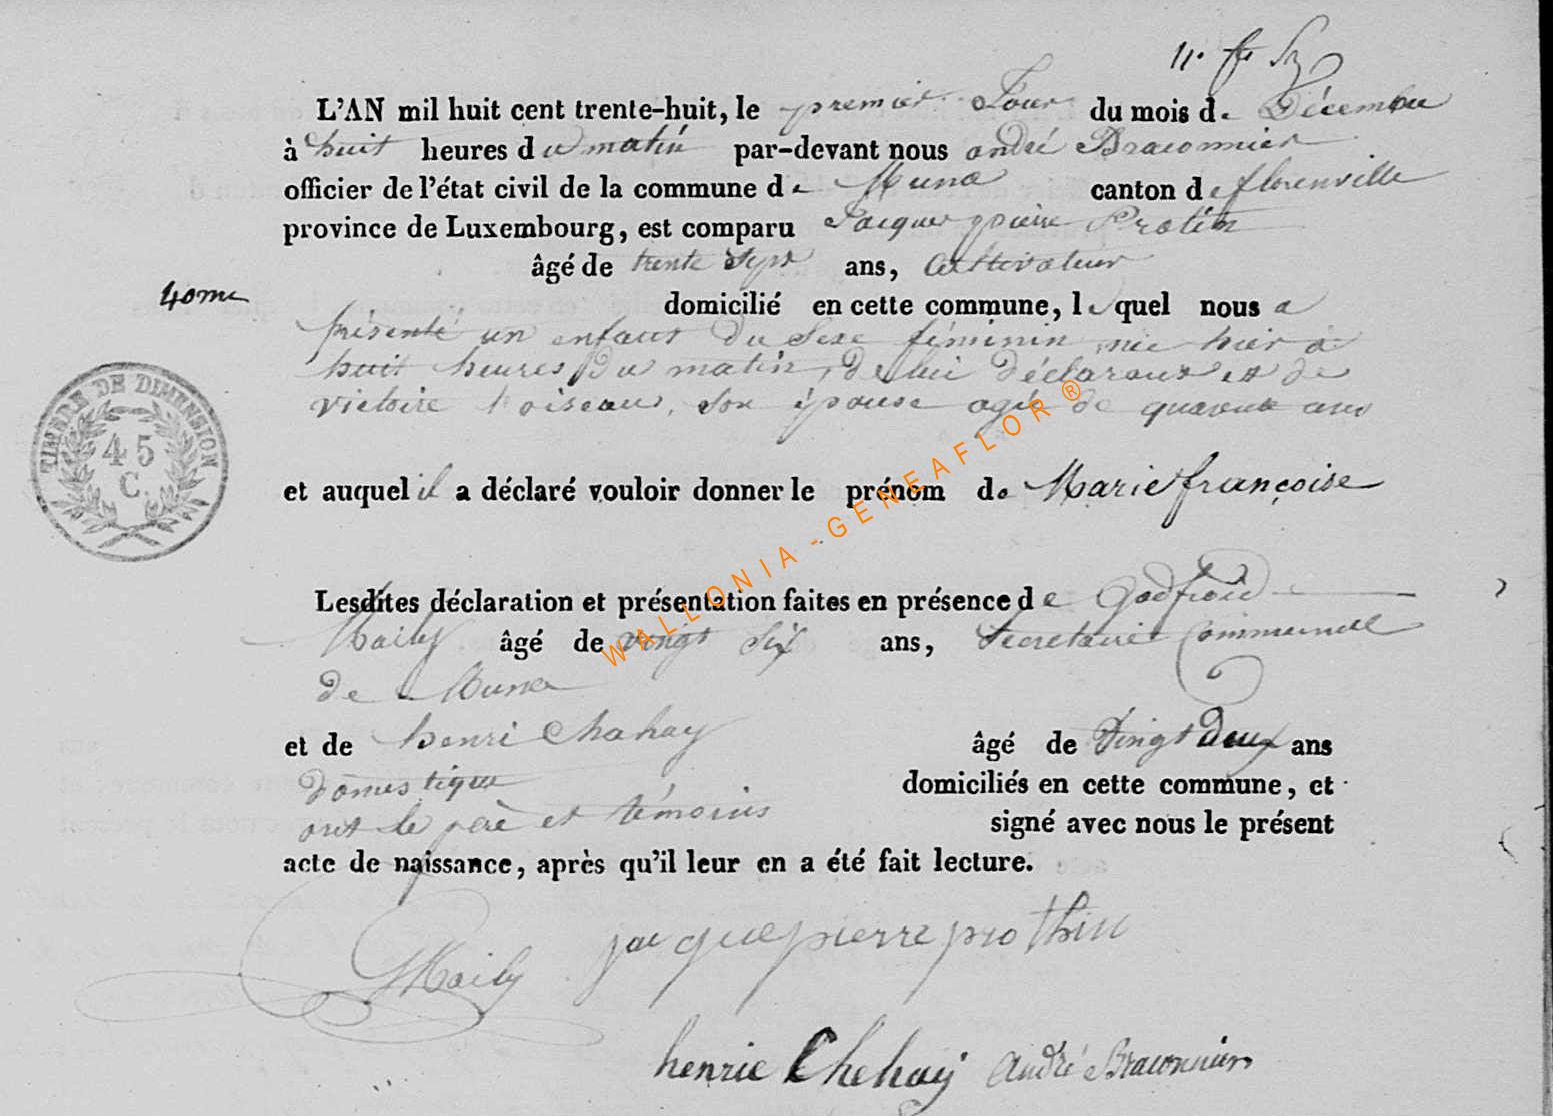 L'AN mil huit cent trente-huit, le premier Jour du mois de Décembre
à huit heures du matin par-devant nous andré Braconnier
officier de l'état civil de la commune de Muno canton de florenville
province de Luxembourg, est comparu Jacques pierre Protin
âgé de trente Sept ans, Cultivateur
40me
domicilié en cette commune, lequel nous a
présenté un enfant du Sexe féminin, née hier à
huit heures Du matin, De lui Déclarant et de
victoire Loiseau, Son épouse agée de quarante ans
TIMBRE DE DIMENSION
45
C.
et auquel il a déclaré vouloir donner le prénom de Marie françoise
Lesdites déclaration et présentation faites en présence de Godfroid
Mailly âgé de vingt Six ans, Secretaire Communal
de Muno
et de henri Chahay âgé de Vingt Deux ans
Domestique domiciliés en cette commune, et
ont le père et témoins signé avec nous le présent
acte de naissance, après qu'il leur en a été fait lecture.
jacque pierre prothin
GMaily
henrie Chehay André Braconnier
WALLONIA - GENEAFLOR ®